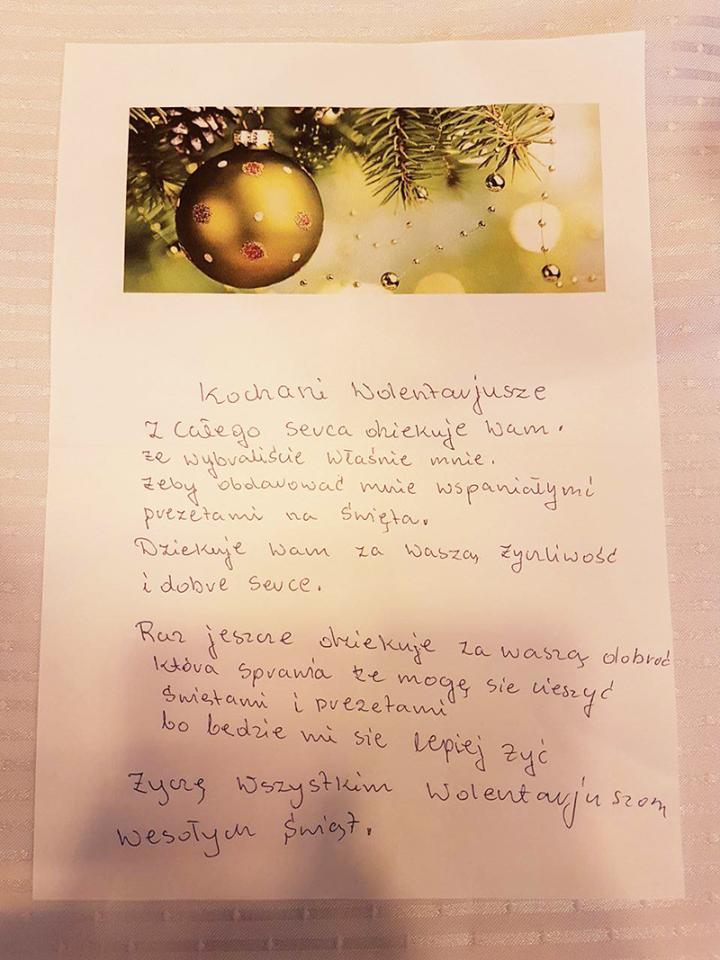 Kochani Wolentarjusze
Z Całego serca dziekuje Wam.
że wybraliście właśnie mnie.
żeby obdarować mnie wspaniałymi
prezetami na Święta.
Dziekuje Wam za waszą życzliwość
i dobre serce.
Raz jeszcze dziekuje za waszą dobroć
która sprawia że mogę sie cieszyć
Świętami i prezetami
bo będzie mi sie lepiej żyć
Życzę Wszystkim Wolentarjuszom
Wesołych Świąt.